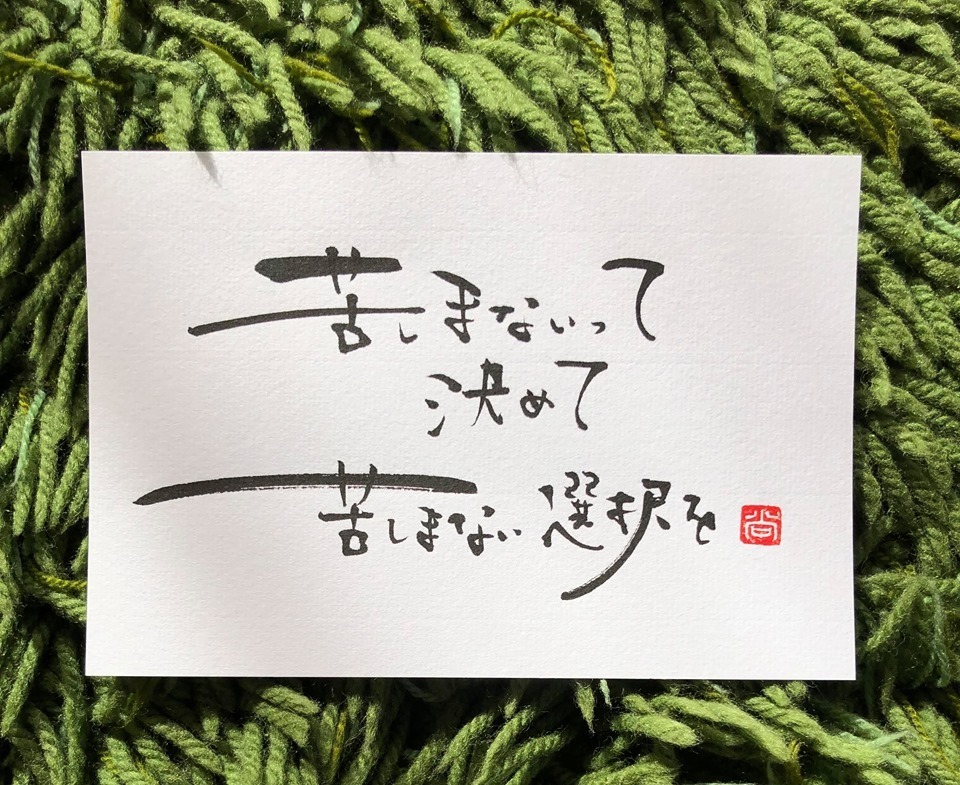 苦しまないって
決めて
苦しまない選択を
尚